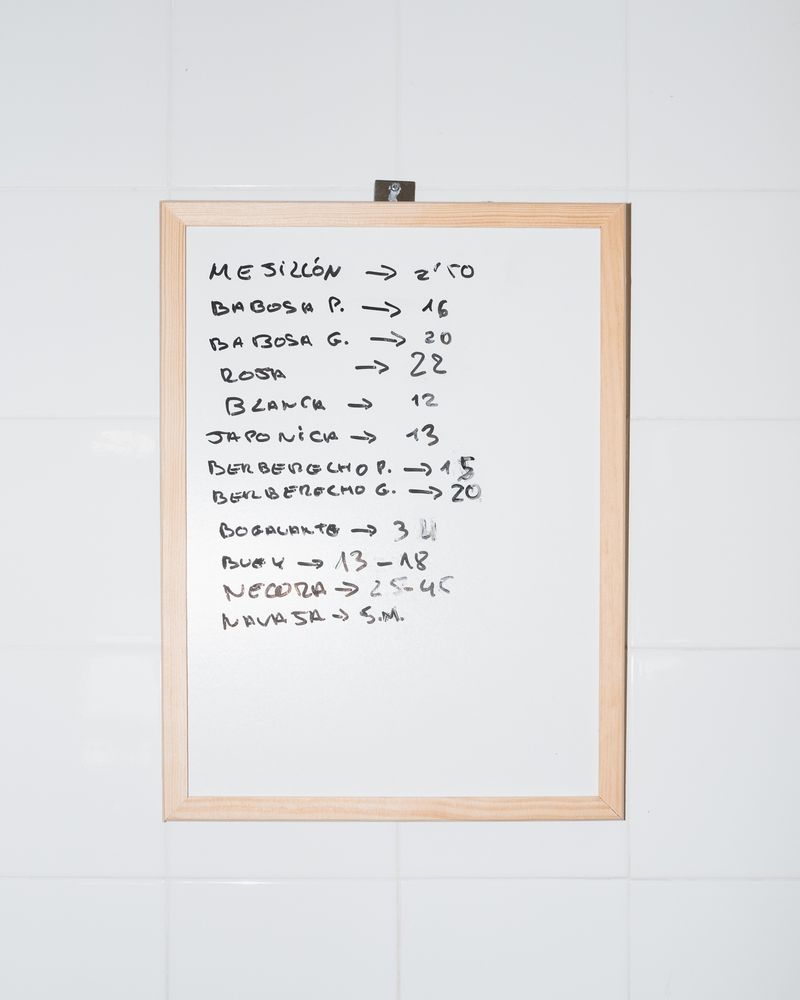 MEJILLÓN → 2'50
BABOSA P. → 16
BABOSA G. → 20
ROSA → 22
BLANCA → 12
JAPONICA → 13
BERBERECHO P. → 15
BERBERECHO G. → 20
BOGAVANTE → 34
BUEY → 13-18
NECORA → 25-45
NAVAJA → S.M.